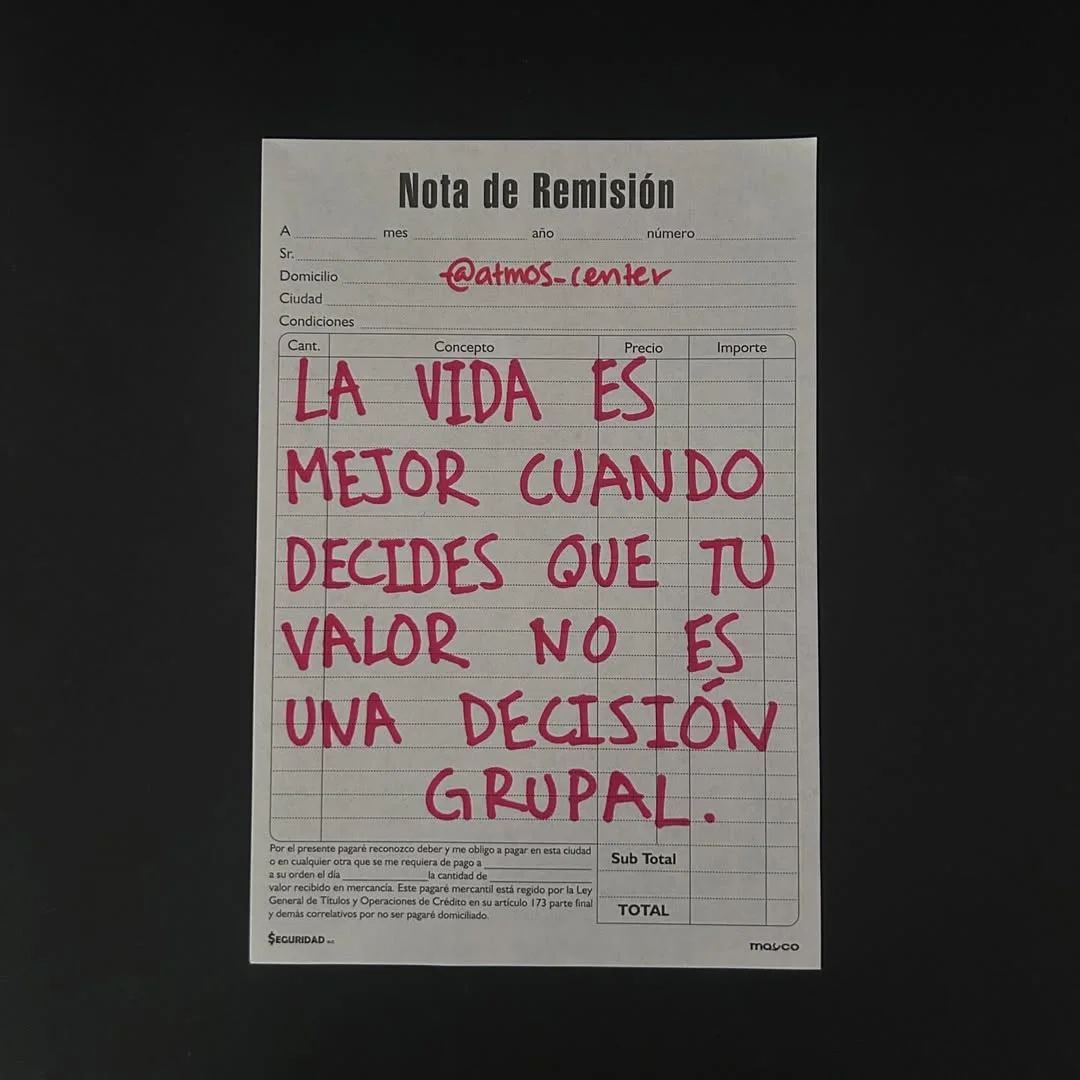 Nota de Remisión
A mes año número
Sr.
Domicilio @atmos_center
Ciudad
Condiciones
Cant. Concepto Precio Importe
LA VIDA ES
MEJOR CUANDO
DECIDES QUE TU
VALOR NO ES
UNA DECISIÓN
GRUPAL.
Por el presente pagaré reconozco deber y me obligo a pagar en esta ciudad
o en cualquier otra que se me requiera de pago a
a su orden el día la cantidad de
valor recibido en mercancía. Este pagaré mercantil está regido por la Ley
General de Títulos y Operaciones de Crédito en su artículo 173 parte final
y demás correlativos por no ser pagaré domiciliado.
Sub Total
TOTAL
$EGURIDAD
mayco